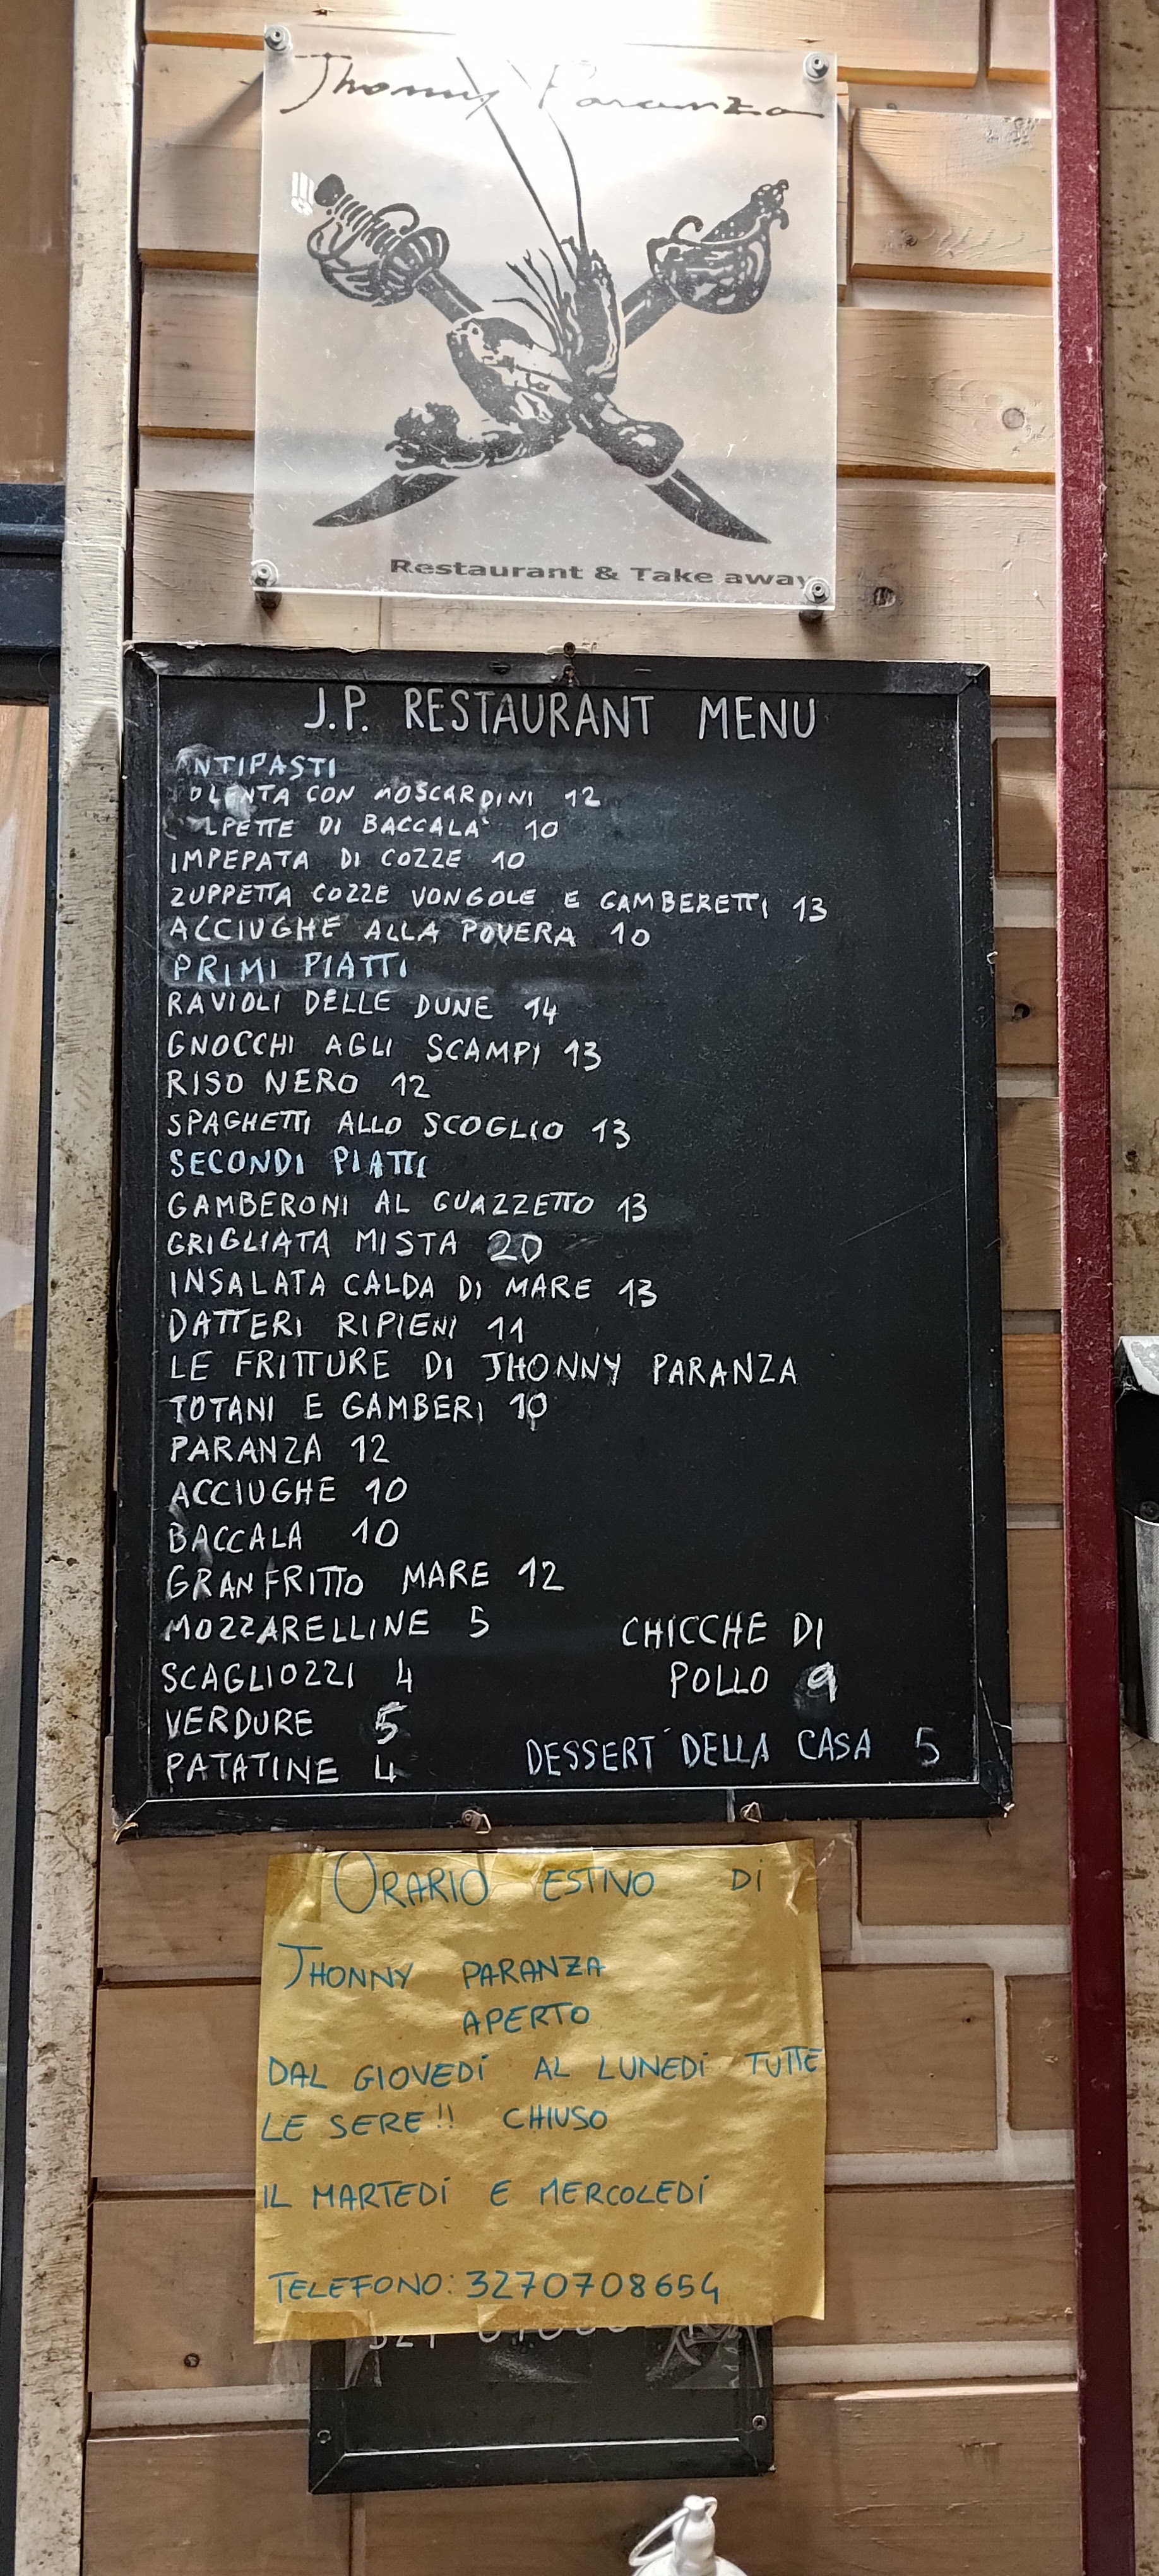 Jhonny Paranza
Restaurant & Take away
J.P. RESTAURANT MENU
ANTIPASTI
POLENTA CON MOSCARDINI 12
POLPETTE DI BACCALA' 10
IMPEPATA DI COZZE 10
ZUPPETTA COZZE VONGOLE E GAMBERETTI 13
ACCIUGHE ALLA POVERA 10
PRIMI PIATTI
RAVIOLI DELLE DUNE 14
GNOCCHI AGLI SCAMPI 13
RISO NERO 12
SPAGHETTI ALLO SCOGLIO 13
SECONDI PIATTI
GAMBERONI AL GUAZZETTO 13
GRIGLIATA MISTA 20
INSALATA CALDA DI MARE 13
DATTERI RIPIENI 11
LE FRITTURE DI JHONNY PARANZA
TOTANI E GAMBERI 10
PARANZA 12
ACCIUGHE 10
BACCALA 10
GRAN FRITTO MARE 12
MOZZARELLINE 5
SCAGLIOZZI 4
VERDURE 5
PATATINE 4
CHICCHE DI
POLLO 9
DESSERT DELLA CASA 5
ORARIO ESTIVO DI
JHONNY PARANZA
APERTO
DAL GIOVEDÍ AL LUNEDÍ TUTTE
LE SERE!! CHIUSO
IL MARTEDÍ E MERCOLEDÍ
TELEFONO: 3270708654